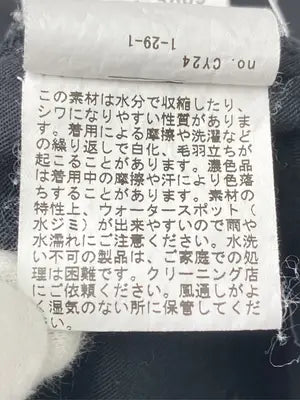 no. CY24
1-29-1
この素材は水分で収縮したり、
シワになりやすい性質がありま
す。着用による摩擦や洗濯など
の繰り返しで白化、毛羽立ちが
起こることがあります。濃色品
は着用中の摩擦や汗により色落
ちすることがあります。素材の
特性上、ウォータースポット（
水ジミ）が出来やすいので雨や
水濡れにご注意ください。水洗
い不可の製品は、ご家庭での処
理は困難です。クリーニング店
にご依頼ください。風通しがよ
く湿気のない所に保管してくだ
さい。